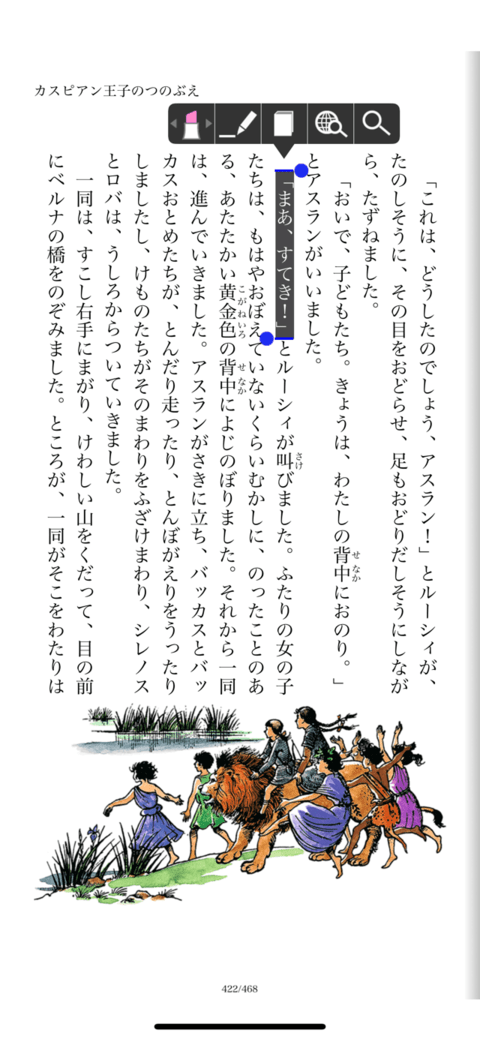 カスピアン王子のつのぶえ
「これは、どうしたのでしょう、アスラン！」とルーシィが、
たのしそうに、その目をおどらせ、足もおどりだしそうにしなが
ら、たずねました。
「おいで、子どもたち。きょうは、わたしの背中におのり。」
とアスランがいいました。
「まあ、すてき！」とルーシィが叫びました。ふたりの女の子
たちは、もはやおぼえていないくらいむかしに、のったことのあ
る、あたたかい黄金色の背中によじのぼりました。それから一同
は、進んでいきました。アスランがさきに立ち、バッカスとバッ
カスおとめたちが、とんだり走ったり、とんぼがえりをうったり
しましたし、けものたちがそのまわりをふざけまわり、シレノス
とロバは、うしろからついていきました。
一同は、すこし右手にまがり、けわしい山をくだって、目の前
にベルナの橋をのぞみました。ところが、一同がそこをわたりは
422/468